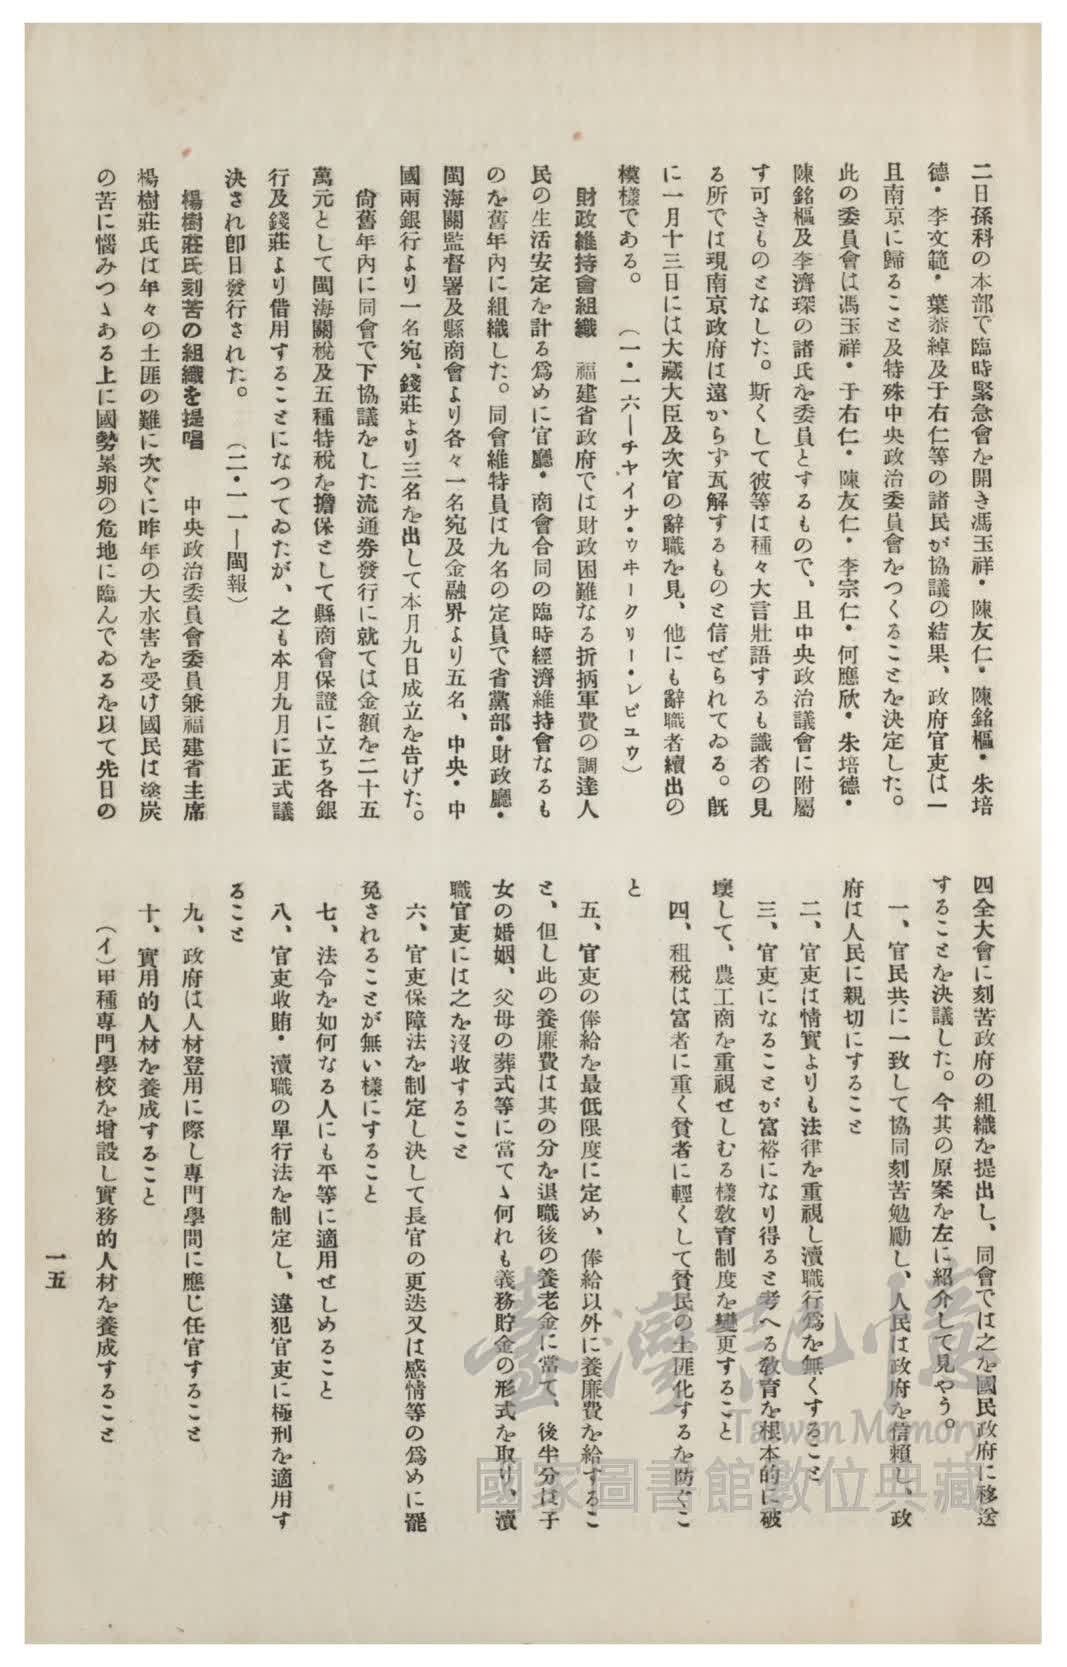 二日孫科の本部で臨時緊急會を開き馮玉祥・陳友仁・陳銘樞・朱培
德・李文範・葉恭綽及于右仁等の諸民が協議の結果、政府官吏は一
且南京に歸ること及特殊中央政治委員會をつくることを決定した。
此の委員會は馮玉祥・于右仁・陳友仁・李宗仁・何應欣・朱培德・
陳銘樞及李濟琛の諸氏を委員とするもので、且中央政治議會に附屬
す可きものとなした。斯くして彼等は種々大言壯語するも識者の見
る所では現南京政府は遠からず瓦解するものと信ぜられてゐる。既
に一月十三日には大藏大臣及次官の辭職を見、他にも辭職者續出の
模樣である。　（一・一六―チヤイナ・ウヰークリー・レビユウ）
財政維持會組織　福建省政府では財政困難なる折柄軍費の調達人
民の生活安定を計る爲めに官廳・商會合同の臨時經濟維持會なるも
のを舊年內に組織した。同會維特員は九名の定員で省黨部・財政廳・
閩海關監督署及縣商會より各々一名宛及金融界より五名、中央・中
國兩銀行より一名宛、錢莊より三名を出して本月九日成立を告げた。
尙舊年內に同會で下協議をした流通券發行に就ては金額を二十五
萬元として閩海關稅及五種特稅を擔保として縣商會保證に立ち各銀
行及錢莊より借用することになつてゐたが、之も本月九月に正式議
決され卽日發行された。　（二・一一―閩報）
楊樹莊氏刻苦の組織を提唱　中央政治委員會委員兼福建省主席
楊樹莊氏は年々の土匪の難に次ぐに昨年の大水害を受け國民は塗炭
の苦に惱みつゝある上に國勢累卵の危地に臨んでゐるを以て先日の
四全大會に刻苦政府の組織を提出し、同會では之を國民政府に移送
することを決議した。今其の原案を左に紹介して見やう。
一、官民共に一致して協同刻苦勉勵し、人民は政府を信賴し、政
府は人民に親切にすること
二、官吏は情實よりも法律を重視し瀆職行爲を無くすること
三、官吏になることが富裕になり得ると考へる敎育を根本的に破
壞して、農工商を重視せしむる樣敎育制度を變更すること
四、租稅は富者に重く貧者に輕くして貧民の土匪化するを防ぐこ
と
五、官吏の俸給を最低限度に定め、俸給以外に養廉費を給するこ
と、但し此の養廉費は其の分を退職後の養老金に當て、後半分は子
女の婚姻、父母の葬式等に當てゝ何れも義務貯金の形式を取り、瀆
職官吏には之を沒收すること
六、官吏保障法を制定し決して長官の更迭又は感情等の爲めに罷
免されることが無い樣にすること
七、法令を如何なる人にも平等に適用せしめること
八、官吏收賄・瀆職の單行法を制定し、違犯官吏に極刑を適用す
ること
九、政府は人材登用に際し專門學問に應じ任官すること
十、實用的人材を養成すること
（イ）甲種專門學校を增設し實務的人材を養成すること
一五
臺灣記憶
Taiwan Memory
國家圖書館數位典藏